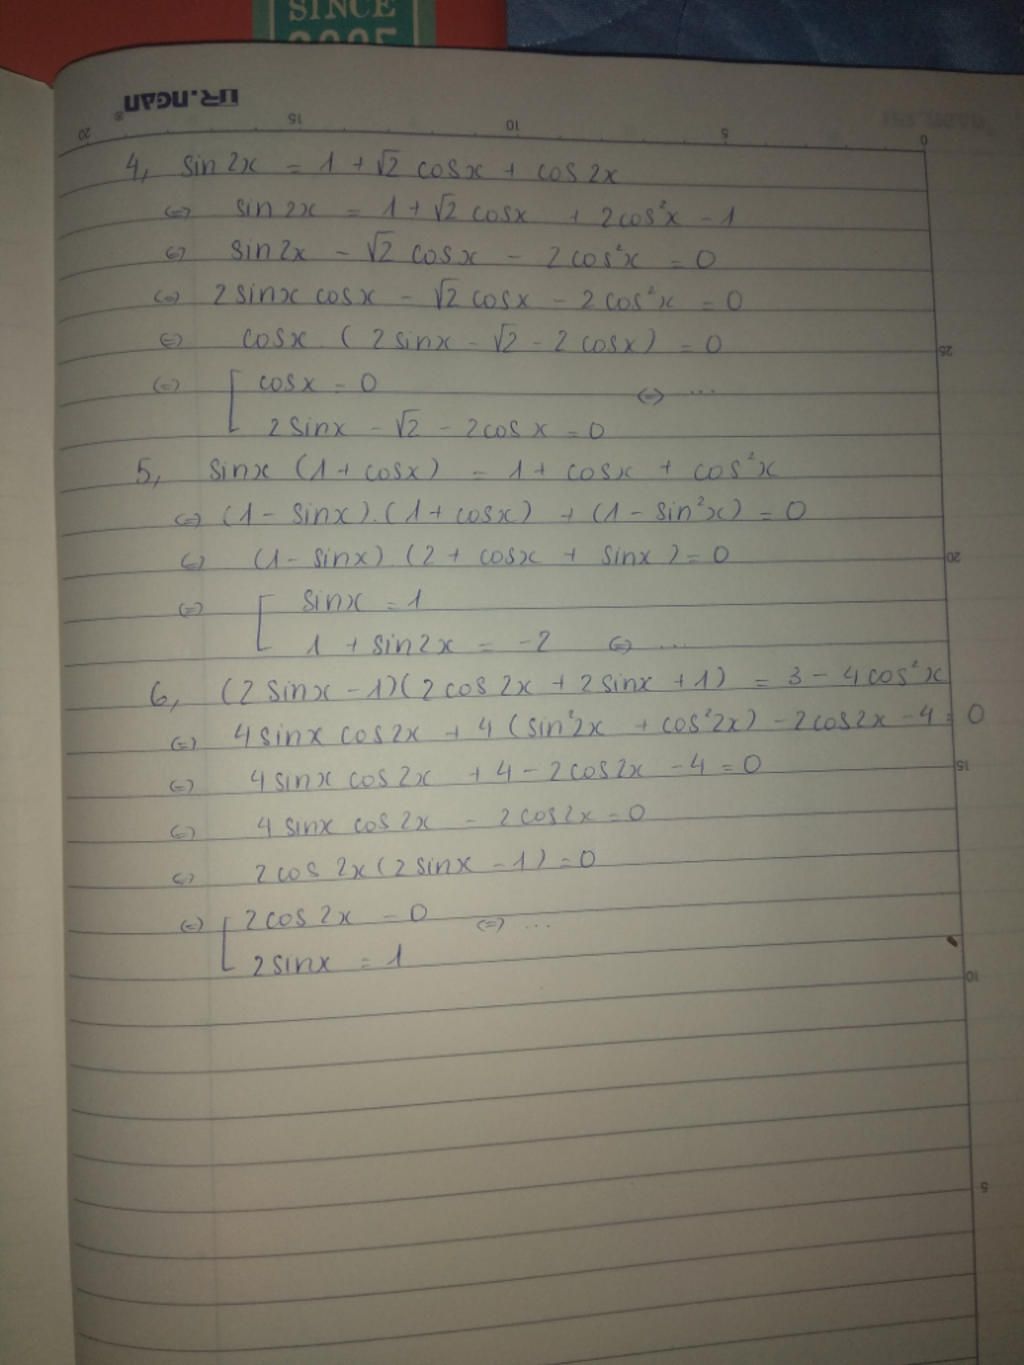 SINCE
2005
DR.NGAN®
20 15 10 5 0
4, sin2x = 1 + √2 cosx + cos2x
(=) sin2x = 1 + √2 cosx + 2cos²x - 1
(=) sin2x - √2 cosx - 2cos²x = 0
(=) 2sinx cosx - √2 cosx - 2cos²x = 0
(=) cosx . (2sinx - √2 - 2cosx) = 0
25
(=) [ cosx = 0 (=) ...
2sinx - √2 - 2cosx = 0
5, sinx (1 + cosx) = 1 + cosx + cos²x
(=) (1 - sinx).(1 + cosx) + (1 - sin²x) = 0
(=) (1 - sinx).(2 + cosx + sinx) = 0
20
(=) [ sinx = 1
1 + sin2x = -2 (=) ...
6, (2sinx - 1)(2cos2x + 2sinx + 1) = 3 - 4cos²x
(=) 4sinx cos2x + 4(sin²2x + cos²2x) - 2cos2x - 4 = 0
(=) 4sinx cos2x + 4 - 2cos2x - 4 = 0
15
(=) 4sinx cos2x - 2cos2x = 0
(=) 2cos2x(2sinx - 1) = 0
(=) [ 2cos2x = 0 (=) ...
2sinx = 1
10
5